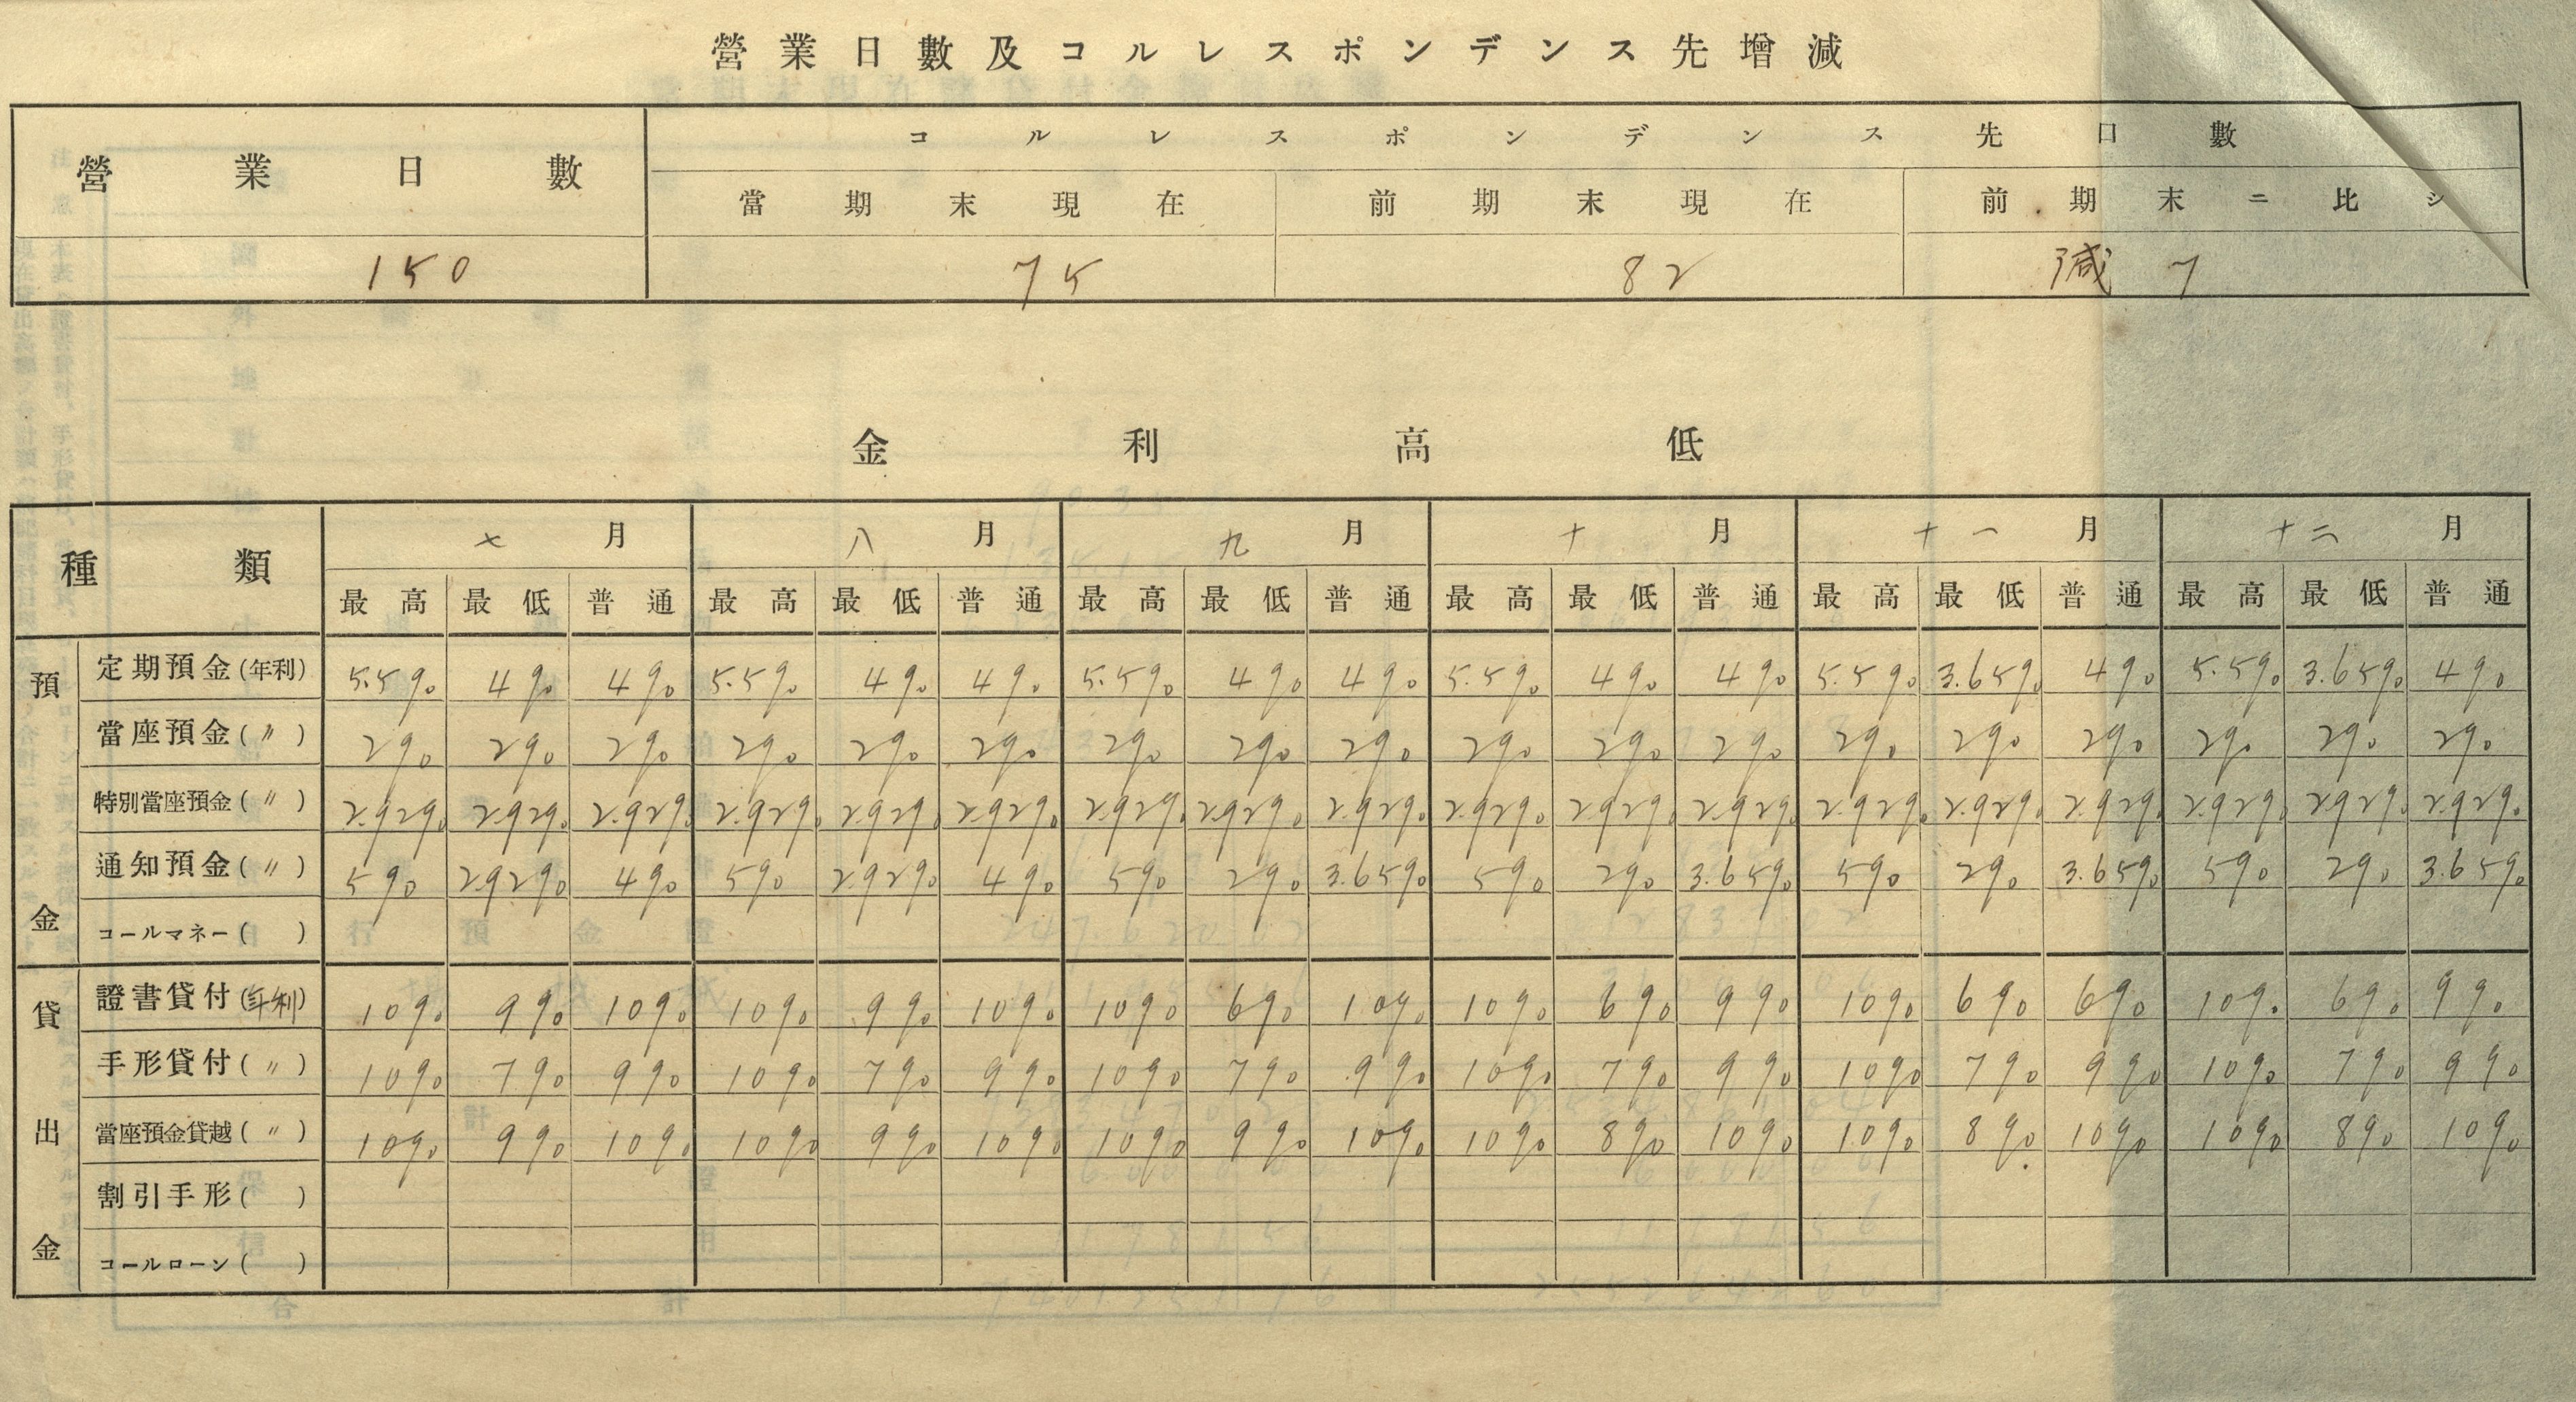 營業日數及コルレスポンデンス先增減
營業日數 コルレスポンデンス先口數
當期末現在 前期末現在 前期末ニ比シ
150 75 82 減 7
金利高低
種類 七月 八月 九月 十月 十一月 十二月
最高 最低 普通 最高 最低 普通 最高 最低 普通 最高 最低 普通 最高 最低 普通 最高 最低 普通
預金
定期預金(年利) 5.5% 4% 4% 5.5% 4% 4% 5.5% 4% 4% 5.5% 4% 4% 5.5% 3.65% 4% 5.5% 3.65% 4%
當座預金(〃) 2% 2% 2% 2% 2% 2% 2% 2% 2% 2% 2% 2% 2% 2% 2% 2% 2% 2%
特別當座預金(〃) 2.92% 2.92% 2.92% 2.92% 2.92% 2.92% 2.92% 2.92% 2.92% 2.92% 2.92% 2.92% 2.92% 2.92% 2.92% 2.92% 2.92% 2.92%
通知預金(〃) 5% 2.92% 4% 5% 2.92% 4% 5% 2% 3.65% 5% 2% 3.65% 5% 2% 3.65% 5% 2% 3.65%
コールマネー( )
貸出金
證書貸付(年利) 10% 9% 10% 10% 9% 10% 10% 6% 10% 10% 6% 9% 10% 6% 6% 10% 6% 9%
手形貸付(〃) 10% 7% 9% 10% 7% 9% 10% 7% 9% 10% 7% 9% 10% 7% 9% 10% 7% 9%
當座預金貸越(〃) 10% 9% 10% 10% 9% 10% 10% 9% 10% 10% 8% 10% 10% 8% 10% 10% 8% 10%
割引手形( )
コールローン( )